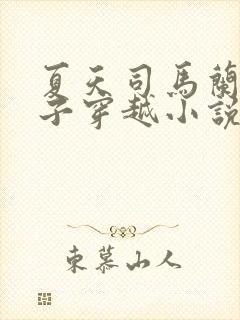 夏天司馬蘭
子穿越小說
東慕山人